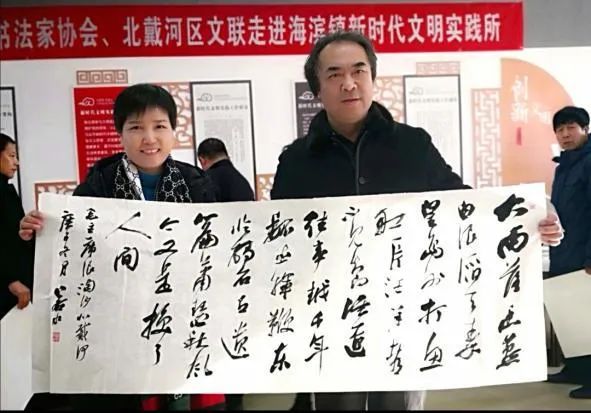 书法家协会、北戴河区文联走进海滨镇新时代文明实践所
创新
大雨落幽燕
白浪滔天秦
皇岛外打鱼
船一片汪洋都
不见知向谁边
往事越千年
魏武挥鞭东
临碣石有遗
篇萧瑟秋风
今又是换了
人间
毛主席浪淘沙北戴河
庚子冬月